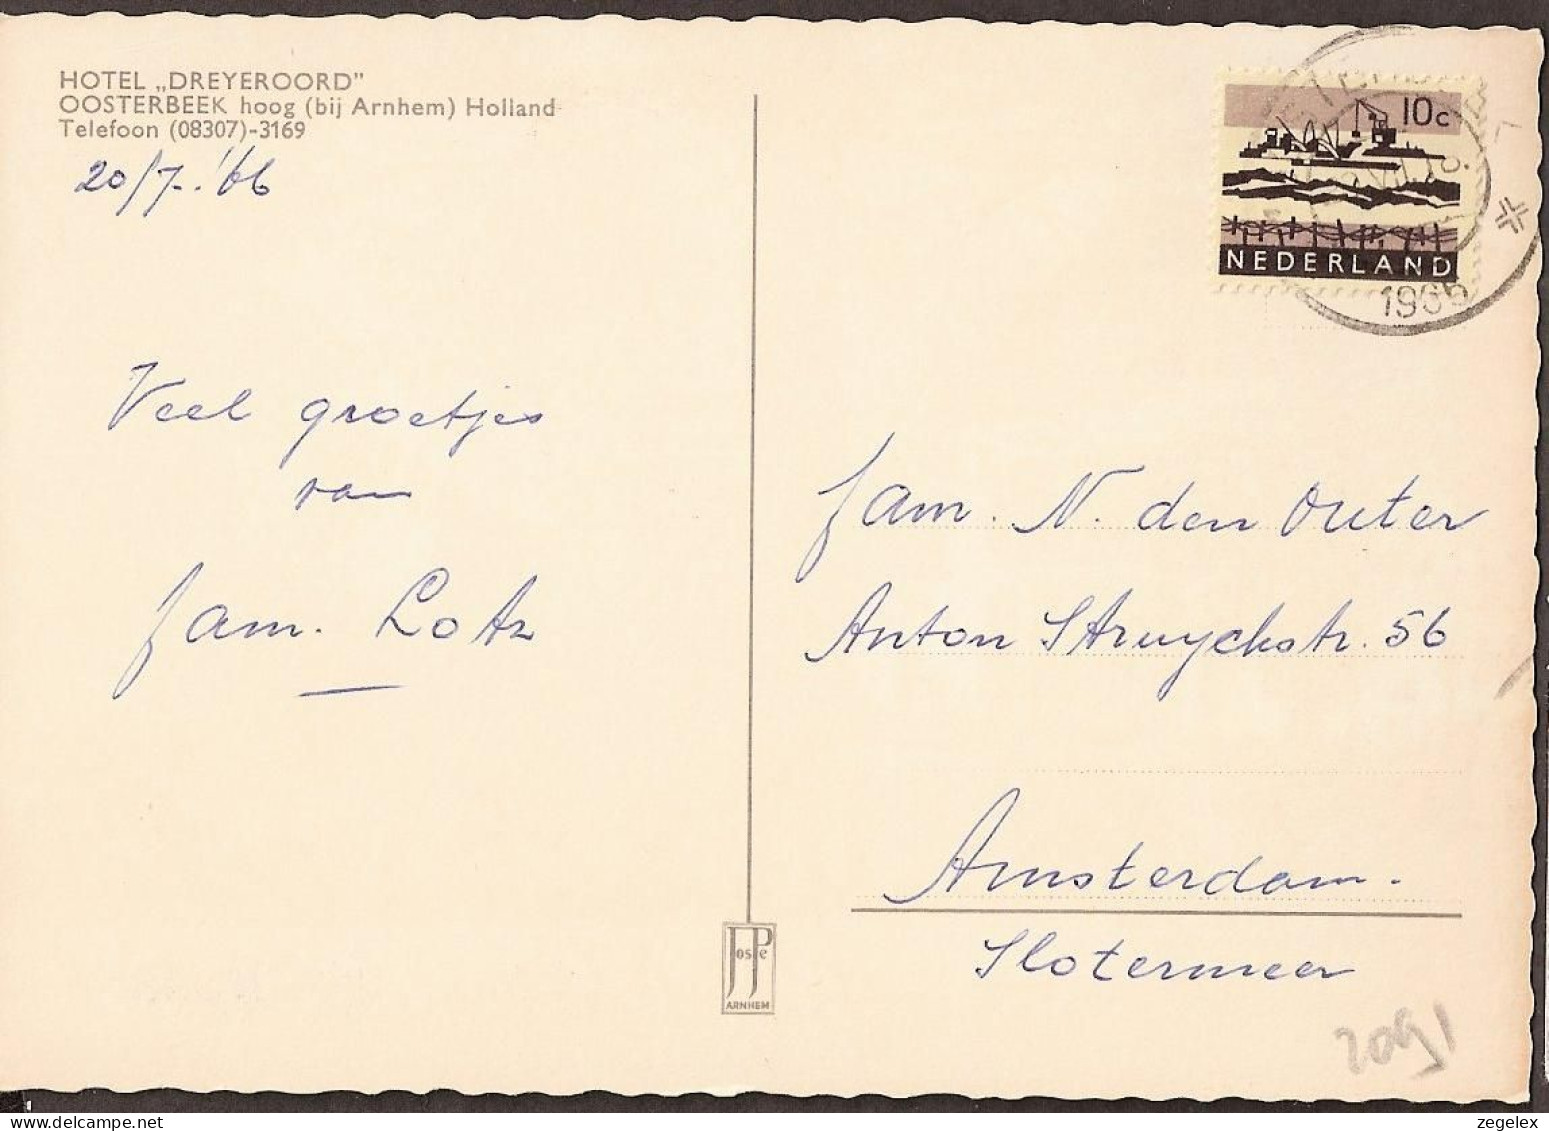 HOTEL „DREYEROORD"
OOSTERBEEK hoog (bij Arnhem) Holland
Telefoon (08307)-3169
20/7-'66
Veel groetjes
van
fam. Lotz
10c
NEDERLAND
1966
fam. N. den Outer
Anton Struyckstr. 56
Amsterdam.
Slotermeer
JosPe
ARNHEM
2091
zegelex